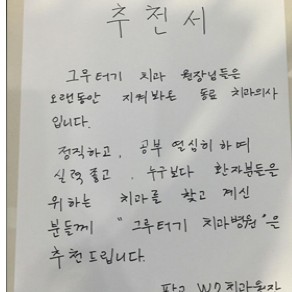 추천서
그루터기 치과 원장님들은
오랜동안 지켜봐온 동료 치과의사
입니다.
정직하고, 공부 열심히 하며
실력좋고, 누구보다 환자분들을
위하는 치과를 찾고 계신
분들께 "그루터기 치과병원"은
추천드립니다.
W치과원장